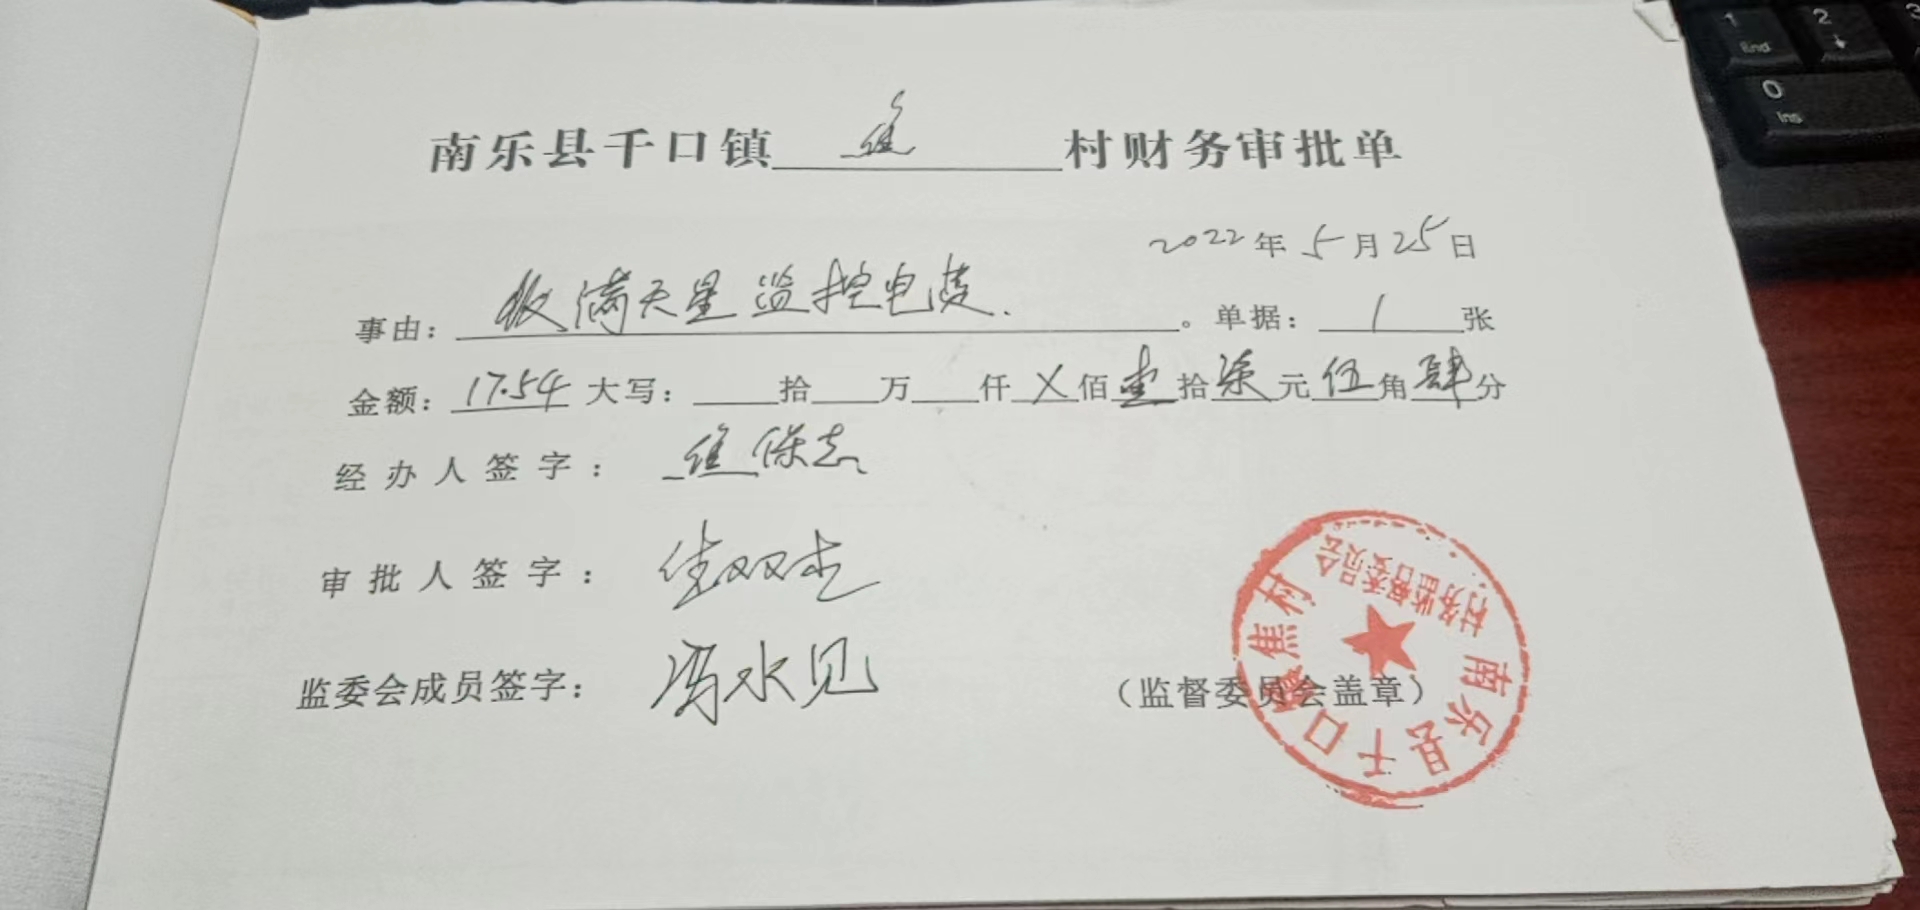 南乐县千口镇 焦 村财务审批单
2022年5月25日
事由：收满天星监控电费.。单据：1张
金额：17.54大写：拾 万 仟X佰壹拾柒元伍角肆分
经办人签字：焦保志
审批人签字：焦双杰
监委会成员签字：冯水见
（监督委员会盖章）
南乐县千口镇焦村
村务监督委员会
1 End
2
3
0 Ins